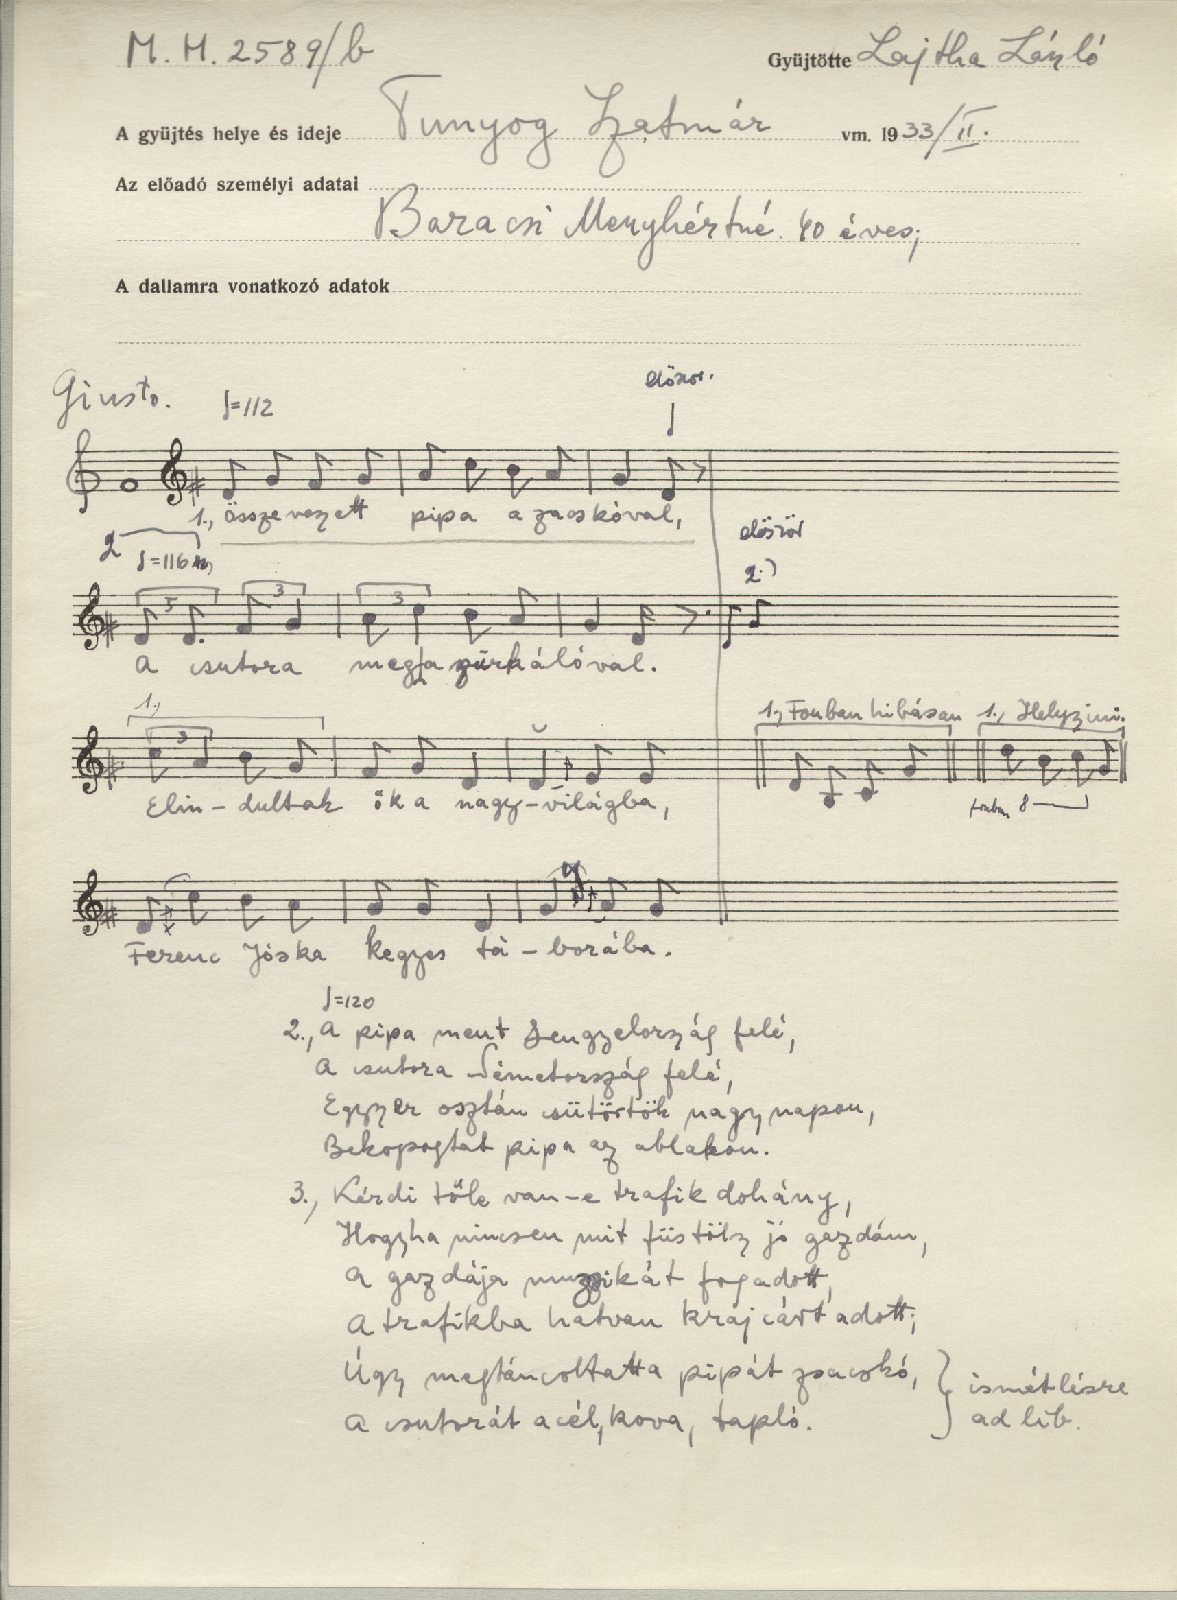 M. H. 2589/b
Gyüjtötte Lajtha László
A gyüjtés helye és ideje Tunyog Szatmár vm. 1933/II.
Az előadó személyi adatai
Baracsi Menyhértné. 40 éves;
A dallamra vonatkozó adatok
Giusto. =112
először.
1., Összeveszett pipa a zacskóval,
2 =116
először
2.)
3 3 3
A csutora meg a zürkálóval.
1.,
3
1., Fonban hibásan 1., Helyszini.
Elin-dultak ők a nagy-világba,
fonban 8
Ferenc Jóska kegyes tá-borába.
=120
2., A pipa ment Lengyelország felé,
A csutora Németország felé,
Egyzer osztán csütörtök nagy napon,
Bekopogtat pipa az ablakon.
3., Kérdi tőle van-e trafik dohány,
Hogyha nincsen mit füstölsz jó gazdám,
A gazdája muzsikát fogadott,
A trafikba hatvan krajcárt adott;
Úgy megtáncoltatta pipát zsacskó,
A csutorát acél, kova, tapló.
} ismétlésre
ad lib.